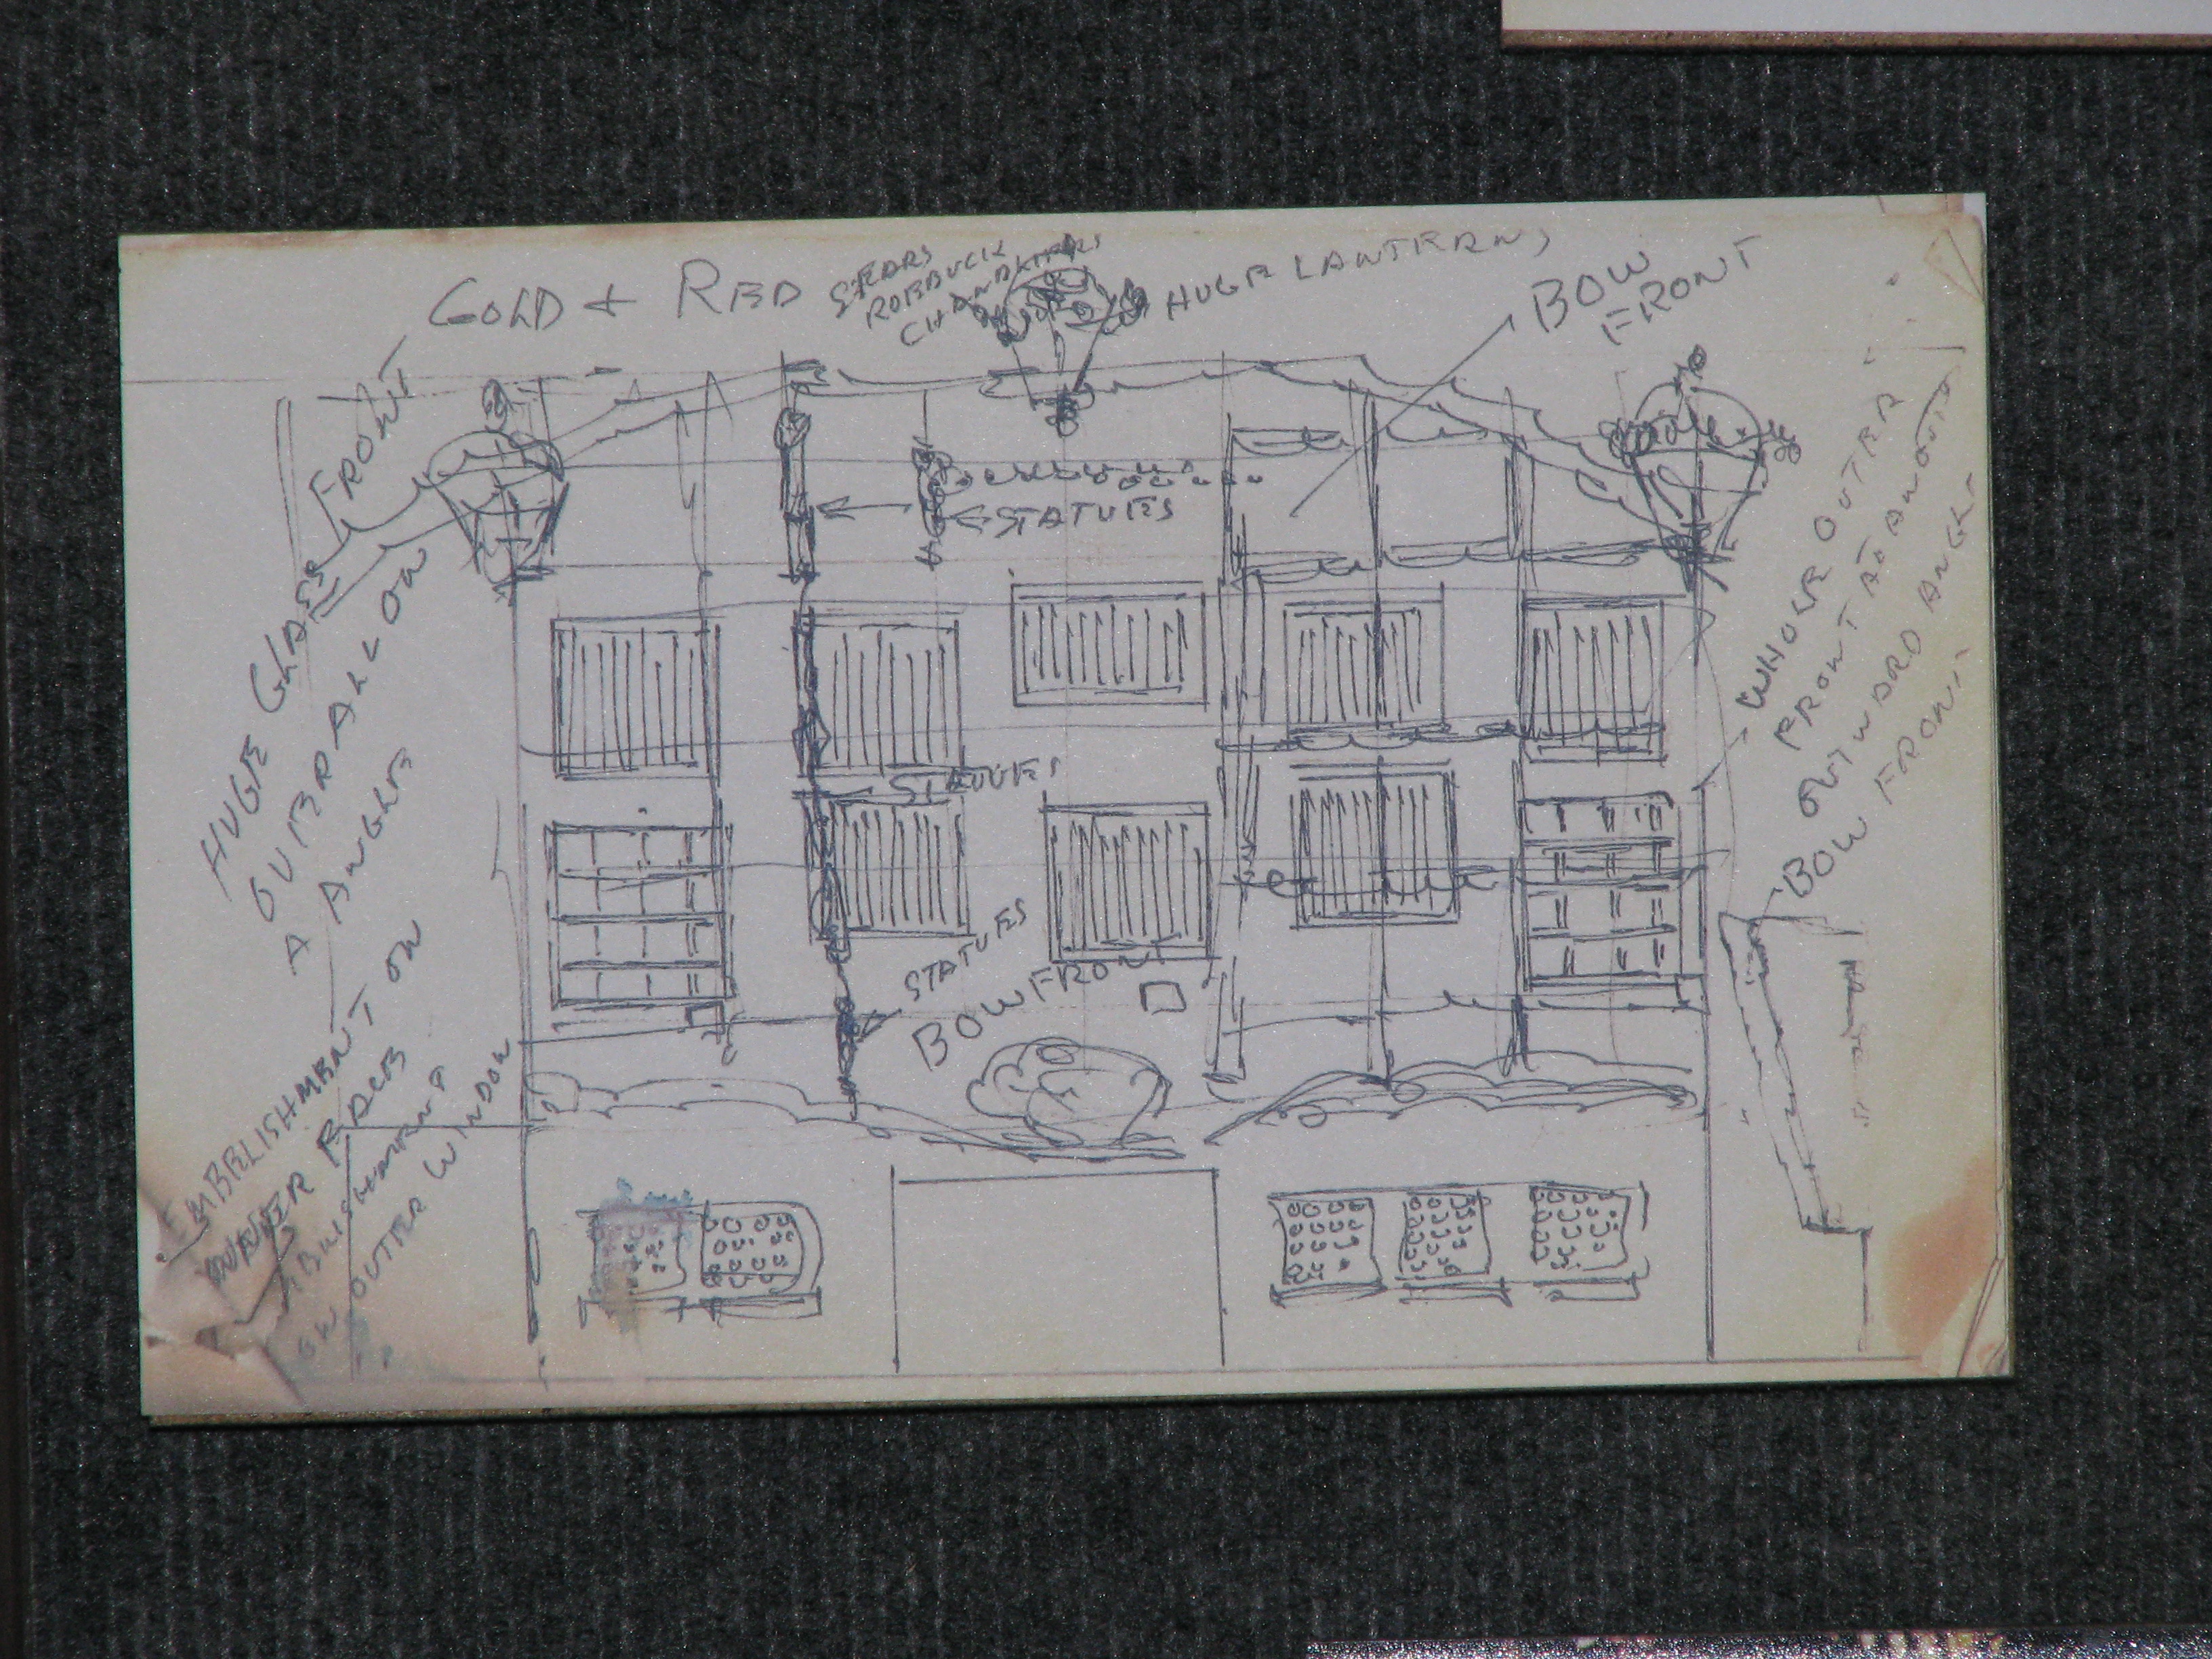 GOLD + RED
SEARS
ROEBUCK
CHANDLIERS
HUGE LANTERNS
BOW
FRONT
HUGE GLASS FRONT
OUTER ALL ON
A ANGLE
STATUES
STATUES
STATUES
BOW FRONT
"WHOLE OUTER"
FRONT
OUTWARD ANGLE
BOW FRONT
EMBELISHMENT ON
INNER FACE
ON OUTER WINDOW